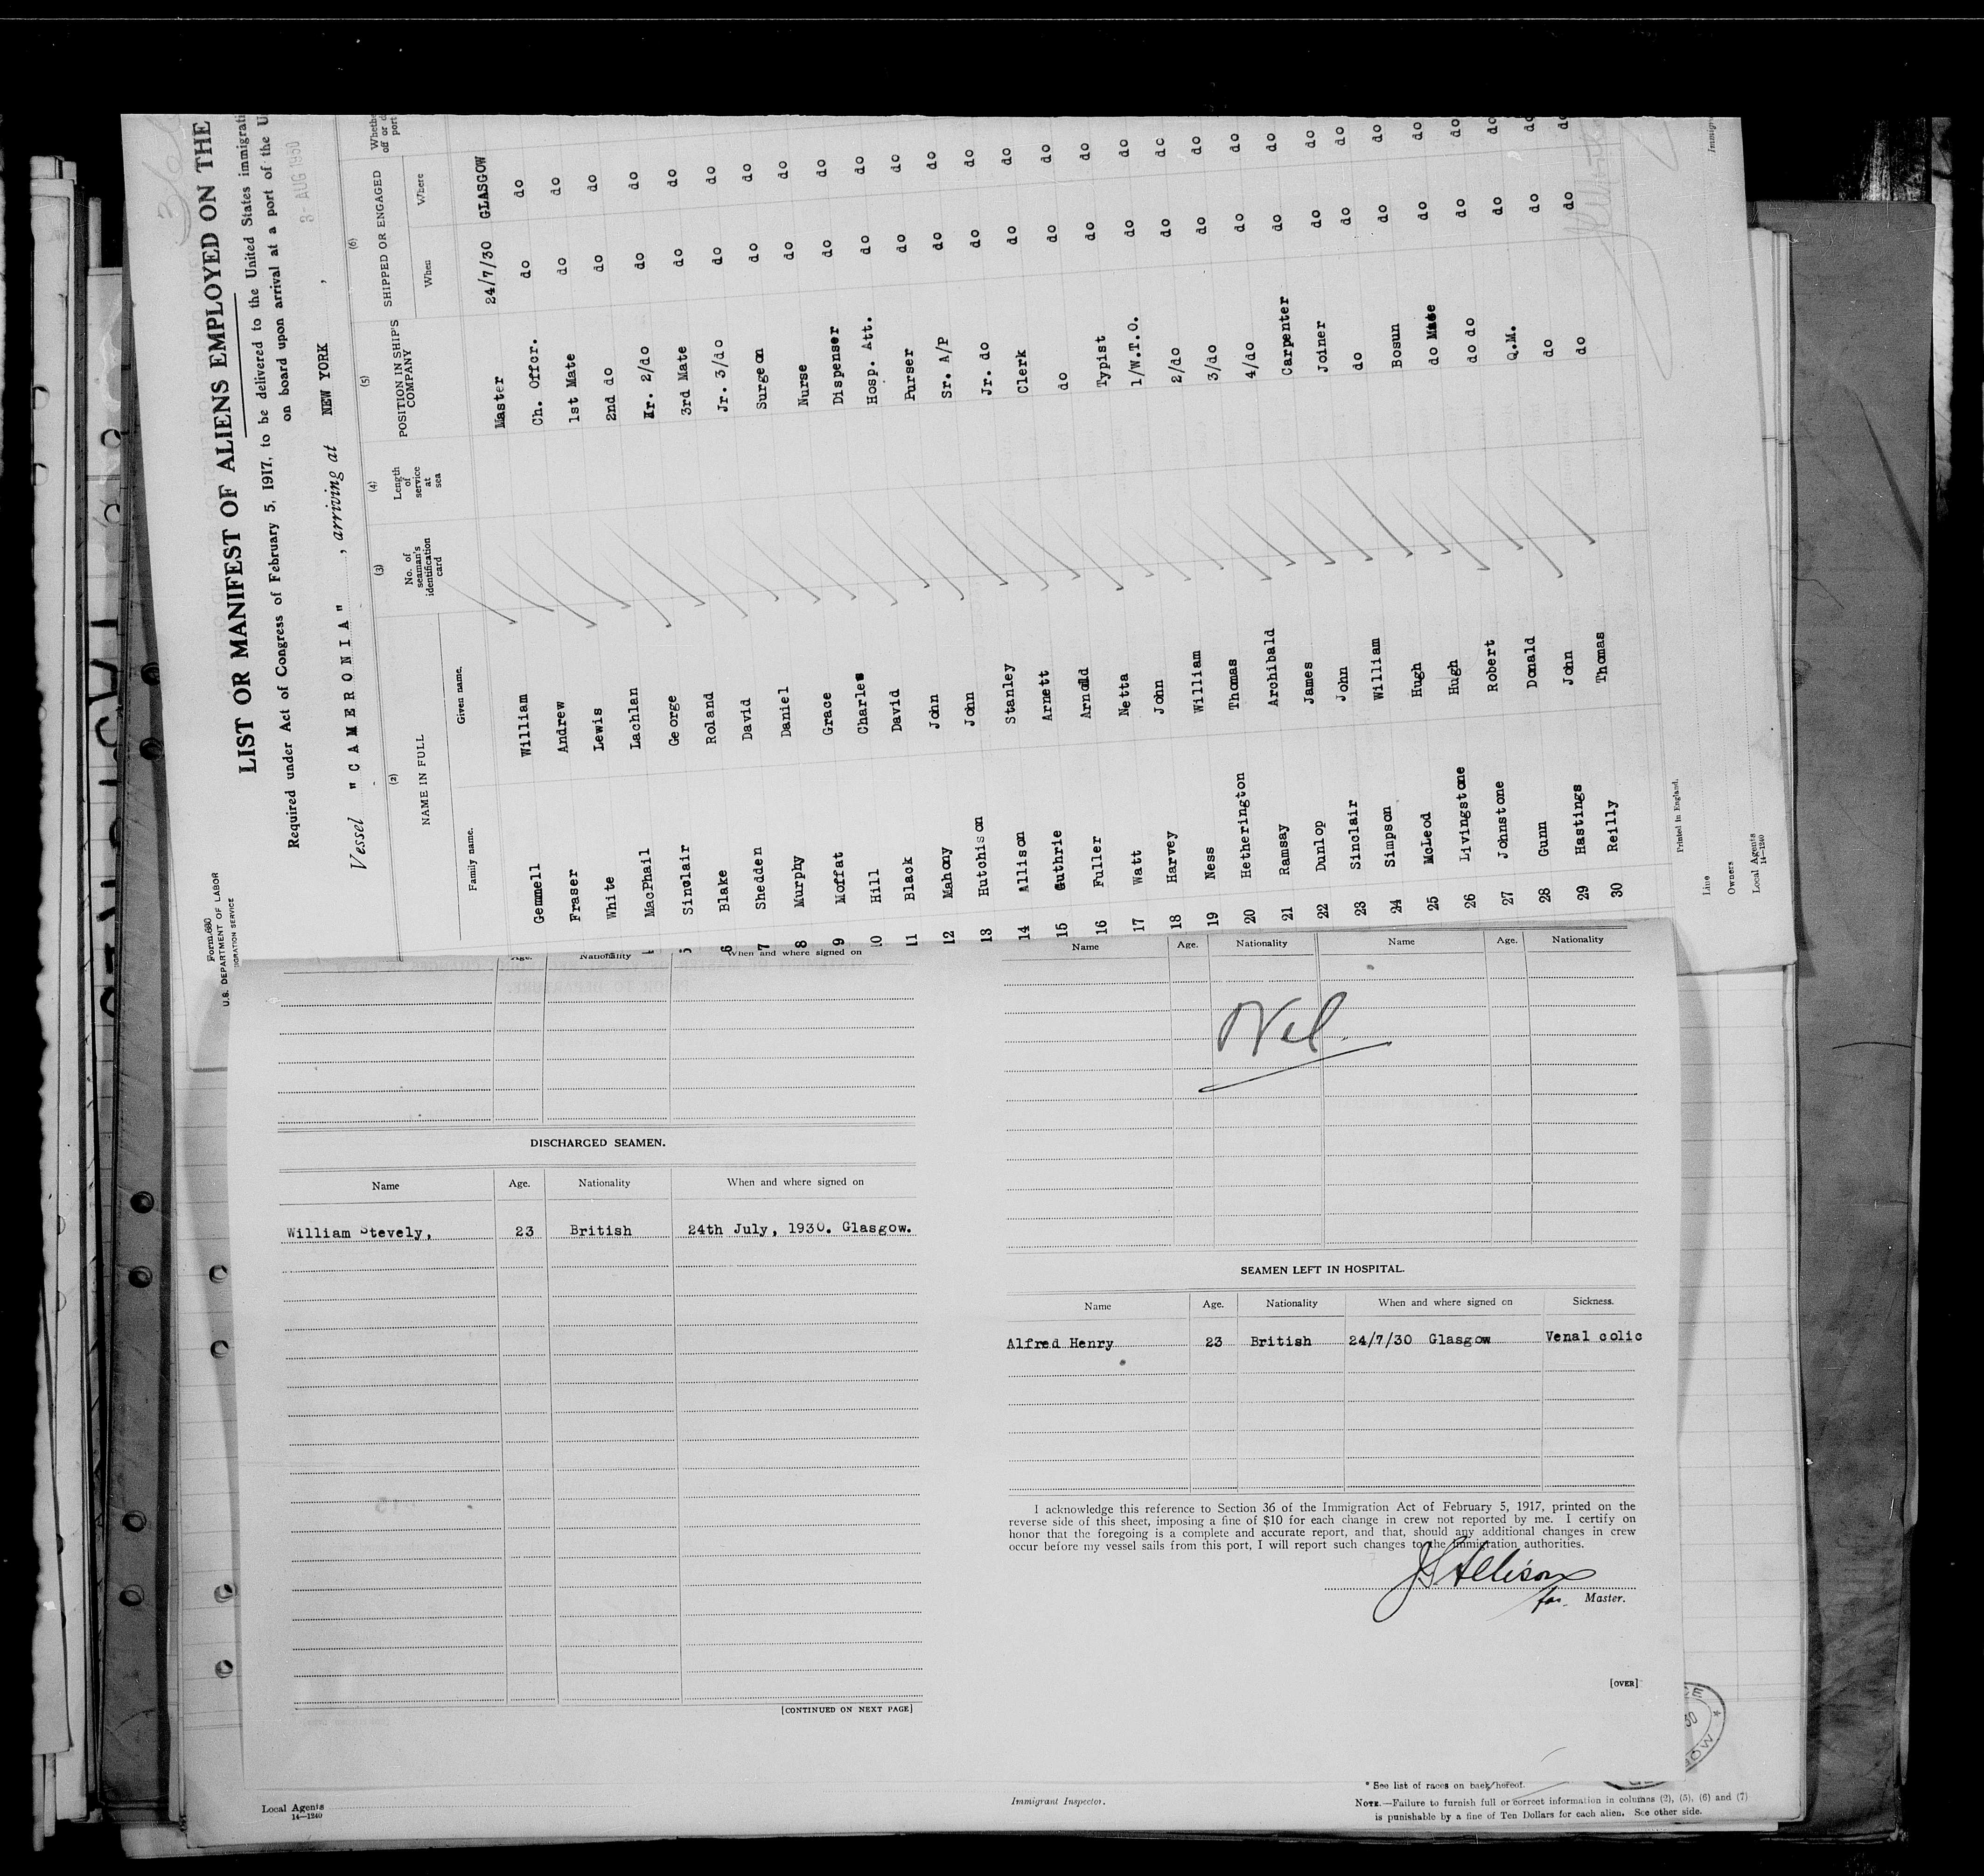 Form 680
U.S. DEPARTMENT OF LABOR
IGRATION SERVICE
LIST OR MANIFEST OF ALIENS EMPLOYED ON THE
Required under Act of Congress of February 5, 1917, to be delivered to the United States immigrati
on board upon arrival at a port of the U
3- AUG 1930
Vessel "CAMERONIA", arriving at NEW YORK,
(2) (3) (4) (5) (6)
NAME IN FULL No. of seaman's identification card Length of service at sea POSITION IN SHIP'S COMPANY SHIPPED OR ENGAGED Whethe
off or d
port
Family name. Given name. When Where
Gemmell William Master 24/7/30 GLASGOW
Fraser Andrew Ch. Offcr. do do
White Lewis 1st Mate do do
MacPhail Lachlan 2nd do do do
5 Sinclair George Jr. 2/do do do
6 Blake Roland 3rd Mate do do
7 Shedden David Jr. 3/do do do
8 Murphy Daniel Surgeon do do
9 Moffat Grace Nurse do do
10 Hill Charles Dispenser do do
11 Black David Hosp. Att. do do
12 Mahony John Purser do do
13 Hutchison John Sr. A/P do do
14 Allison Stanley Jr. do do do
15 Guthrie Arnett Clerk do do
16 Fuller Arnold do do do
17 Watt Netta Typist do do
18 Harvey John 1/W.T.O. do do
19 Ness William 2/do do do
20 Hetherington Thomas 3/do do do
21 Ramsay Archibald 4/do do do
22 Dunlop James Carpenter do do
23 Sinclair John Joiner do do
24 Simpson William do do do
25 McLeod Hugh Bosun do do
26 Livingstone Hugh do Mate do do
27 Johnstone Robert do do do do
28 Gunn Donald Q.M. do do
29 Hastings John do do do
30 Reilly Thomas do do do
Printed in England.
Line
Owners
Local Agents
14—1240
Immigr
Age. Nationality When and where signed on
DISCHARGED SEAMEN.
Name Age. Nationality When and where signed on
William Stevely, 23 British 24th July, 1930. Glasgow.
[CONTINUED ON NEXT PAGE]
Name Age. Nationality Name Age. Nationality
Nil.
SEAMEN LEFT IN HOSPITAL.
Name Age. Nationality When and where signed on Sickness.
Alfred Henry 23 British 24/7/30 Glasgow Venal colic
I acknowledge this reference to Section 36 of the Immigration Act of February 5, 1917, printed on the
reverse side of this sheet, imposing a fine of $10 for each change in crew not reported by me. I certify on
honor that the foregoing is a complete and accurate report, and that, should any additional changes in crew
occur before my vessel sails from this port, I will report such changes to the Immigration authorities.
J S Allison
for Master.
[OVER]
Local Agents
14—1240
Immigrant Inspector.
* See list of races on back hereof.
NOTE.—Failure to furnish full or correct information in columns (2), (5), (6) and (7)
is punishable by a fine of Ten Dollars for each alien. See other side.